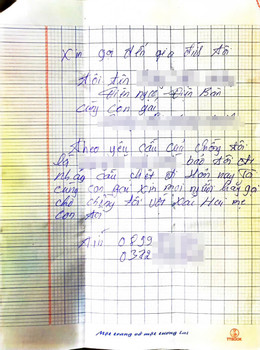 Xin gọi đến gia đình tôi
tôi tên
Điện ngữ Điện Bàn
cùng con gái
Theo yêu cầu của chồng tôi
là bảo tôi
nhảy cầu chết đi Hôm nay Tôi
cùng con gái xin mọi người hãy gọi
cho chồng tôi vớt xác Hai mẹ
con tôi
0899
0372
Một trang vở một tương lai